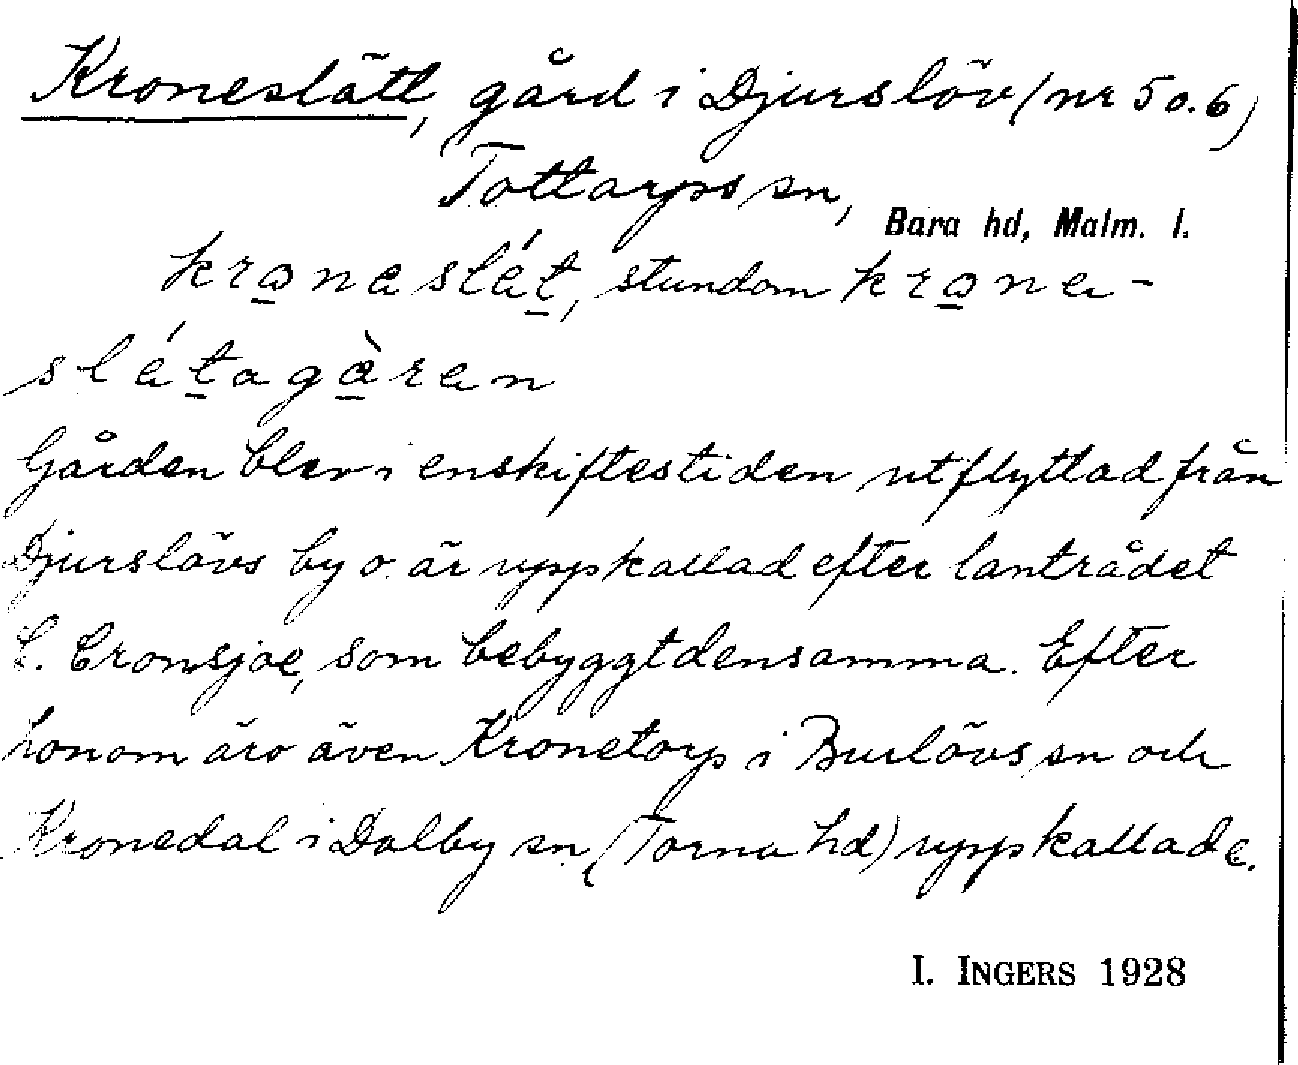 Kroneslätt, gård i Djurslöv (nr 5 o. 6)
Tottarps sn,
Bara hd, Malm. l.
kronaslát, stundom krone-
slátagàren
Gården blev i enskiftestiden utflyttad från
Djurslövs by o. är uppkallad efter lantrådet
C. Cronsjoe, som bebyggt densamma. Efter
honom äro även Kronetorp i Burlövs sn och
Kronedal i Dalby sn (Torna hd) uppkallade.
I. INGERS 1928